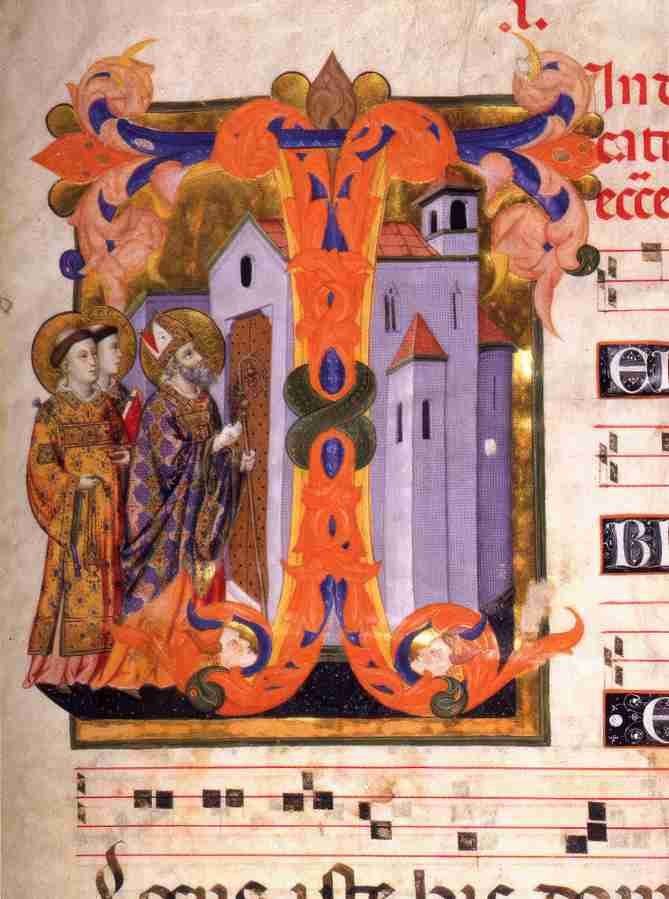 .I.
Ind
cati
ecce
T E
BI
E
Locus iste hic dom